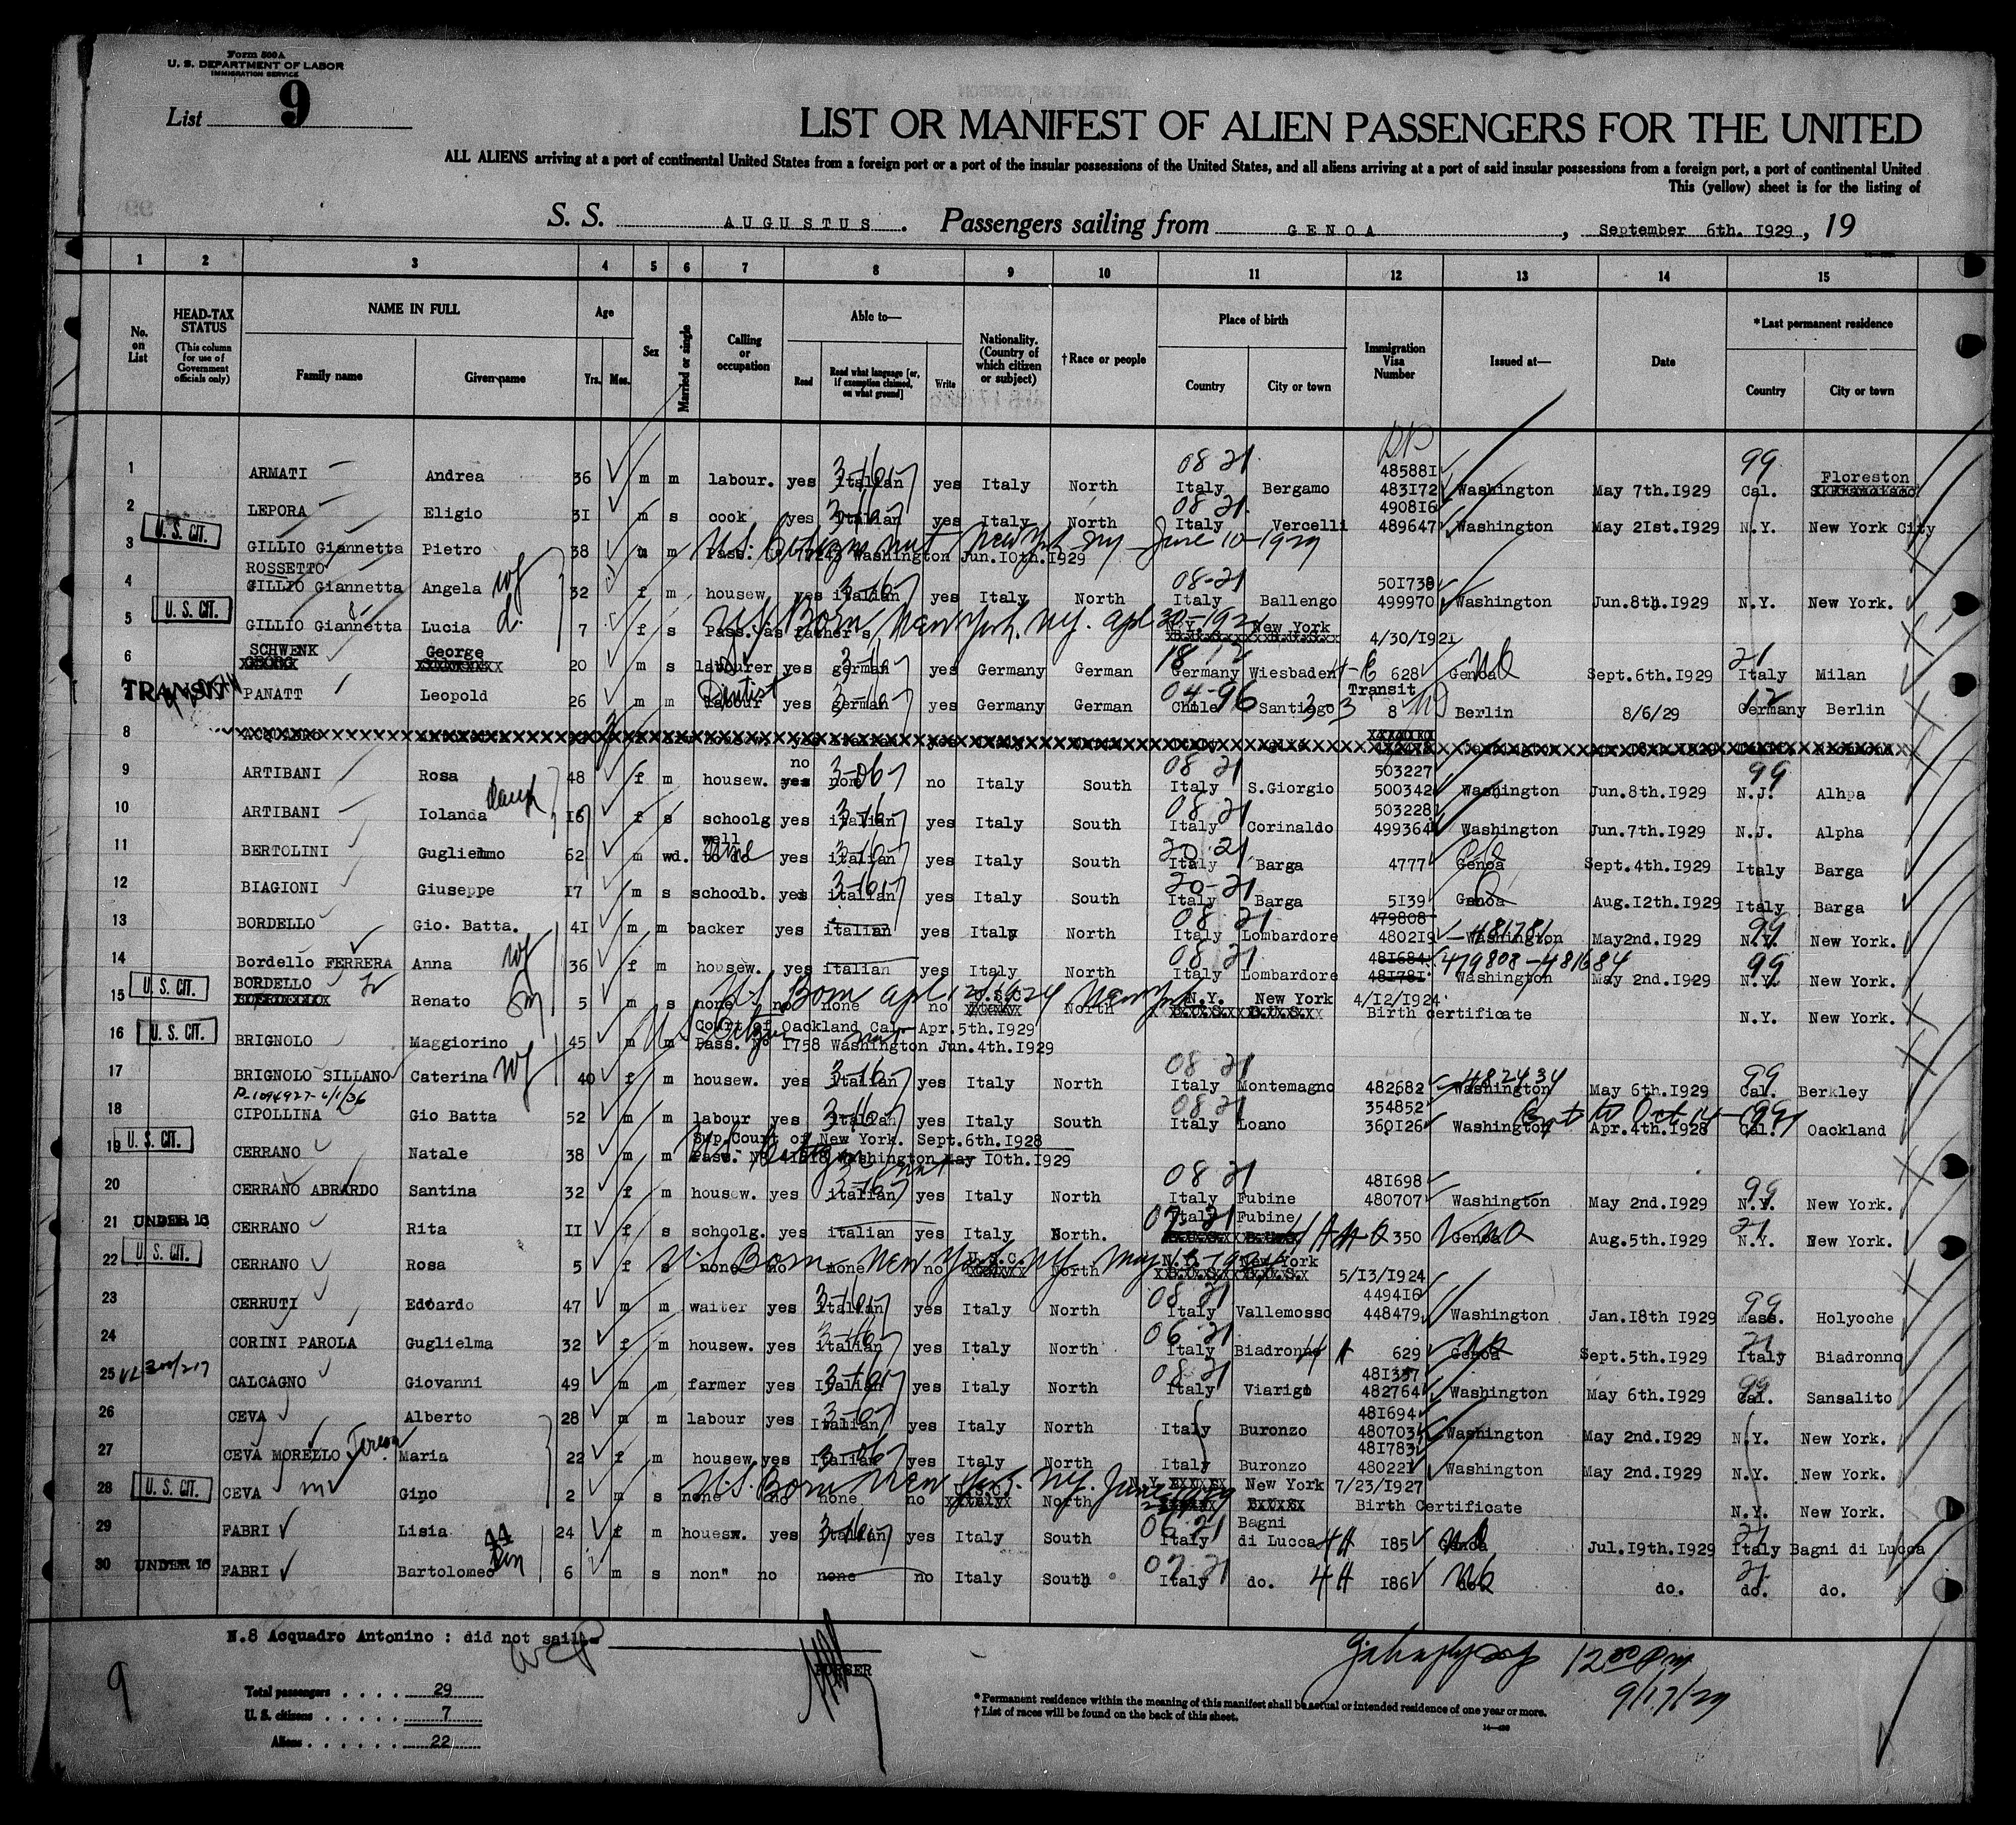 Form 500 A
U. S. DEPARTMENT OF LABOR
IMMIGRATION SERVICE
List 9
LIST OR MANIFEST OF ALIEN PASSENGERS FOR THE UNITED
ALL ALIENS arriving at a port of continental United States from a foreign port or a port of the insular possessions of the United States, and all aliens arriving at a port of said insular possessions from a foreign port, a port of continental United
This (yellow) sheet is for the listing of
S. S. AUGUSTUS. Passengers sailing from GENOA, September 6th. I929, 19
1 2 3 4 5 6 7 8 9 10 11 12 13 14 15
No. on List
HEAD-TAX STATUS (This column for use of Government officials only)
NAME IN FULL Family name Given name
Age Yrs. Mos.
Sex
Married or single
Calling or occupation
Able to— Read Read what language [or, if exemption claimed, on what ground] Write
Nationality. (Country of which citizen or subject)
†Race or people
Place of birth Country City or town
Immigration Visa Number
Issued at—
Date
*Last permanent residence Country City or town
1 ARMATI Andrea 36 m m labour. yes italian yes Italy North Italy Bergamo 48588I 483I72 Washington May 7th.I929 Cal. Floreston
2 LEPORA Eligio 3I m s cook yes italian yes Italy North Italy Vercelli 4908I6 489647 Washington May 2Ist.I929 N.Y. New York City
3 U. S. CIT. GILLIO Giannetta Pietro 38 m m Pass. Washington Jun.I0th.I929 New York NY June 10-1929
4 ROSSETTO GILLIO Giannetta Angela wf 32 f m housew. yes italian yes Italy North Italy Ballengo 50I738 499970 Washington Jun.8th.I929 N.Y. New York.
5 U. S. CIT. GILLIO Giannetta Lucia d. 7 f s Pass. as father's U.S. Born, New York, NY. apl 30-1921 N.Y. New York 4/30/I92I
6 SCHWENK George 20 m s labourer yes german yes Germany German Germany Wiesbaden 628 Genoa Sept.6th.I929 Italy Milan
7 TRANSIT PANATT Leopold 26 m m labour Dentist yes german yes Germany German Chile Santiago Transit 8 Berlin 8/6/29 Germany Berlin
8
9 ARTIBANI Rosa 48 f m housew. no yes none no Italy South Italy S.Giorgio 503227 500342 Washington Jun.8th.I929 N.J. Alhpa
10 ARTIBANI Iolanda daugh I6 f s schoolg yes italian yes Italy South Italy Corinaldo 503228 499364 Washington Jun.7th.I929 N.J. Alpha
11 BERTOLINI Guglielmo 62 m wd. well to do yes italian yes Italy South Italy Barga 4777 Genoa Sept.4th.I929 Italy Barga
12 BIAGIONI Giuseppe I7 m s schoolb. yes italian yes Italy South Italy Barga 5I39 Genoa Aug.I2th.I929 Italy Barga
13 BORDELLO Gio. Batta. 4I m m backer yes italian yes Italy North Italy Lombardore 479808 4802I9 - 481781 Washington May2nd.I929 N.Y. New York.
14 Bordello FERRERA Anna wf 36 f m housew. yes italian yes Italy North Italy Lombardore 48I684 48I78I 479808-481684 Washington May 2nd.I929 N.Y. New York.
15 U. S. CIT. BORDELLO Renato 5 m s none no none no U.S.C. North N.Y. New York 4/I2/I924 Birth certificate N.Y. New York.
U.S. Born apl 12 1924 New York
16 U. S. CIT. BRIGNOLO Maggiorino 45 m m Court of Oackland Cal. Apr.5th.I929
Pass. N° I758 Washington Jun.4th.I929
17 BRIGNOLO SILLANO Caterina wf 40 f m housew. yes italian yes Italy North Italy Montemagno 482682 - 482434 Washington May 6th.I929 Cal. Berkley
18 CIPOLLINA Gio Batta 52 m m labour yes italian yes Italy South Italy Loano 354852 360I26 Washington Apr.4th.I928 Cal. Oackland
19 U. S. CIT. CERRANO Natale 38 m m Sup.Court of New York. Sept.6th.I928
Pass. Washington May I0th.I929
20 CERRANO ABRARDO Santina 32 f m housew. yes italian yes Italy North Italy Fubine 48I698 480707 Washington May 2nd.I929 N.Y. New York.
21 UNDER 16 CERRANO Rita II f s schoolg. yes italian yes Italy North. Italy Fubine 350 Genoa Aug.5th.I929 N.Y. New York.
22 U. S. CIT. CERRANO Rosa 5 f s none no none no U.S.C. North New York 5/I3/I924
23 CERRUTI Edoardo 47 m m waiter yes italian yes Italy North Italy Vallemosso 4494I6 448479 Washington Jan.I8th I929 Mass. Holyoche
24 CORINI PAROLA Guglielma 32 f m housew. yes italian yes Italy North Italy Biadronno 629 Genoa Sept.5th.I929 Italy Biadronno
25 CALCAGNO Giovanni 49 m m farmer yes Italian yes Italy North Italy Viarigi 48I337 482764 Washington May 6th.I929 Cal. Sansalito
26 CEVA Alberto 28 m m labour yes Italian yes Italy North Italy Buronzo 48I694 480703 Washington May 2nd.I929 N.Y. New York.
27 CEVA MORELLO Teresa Maria 22 f m housew. yes Italian yes Italy North Italy Buronzo 48I783 48022I Washington May 2nd.I929 N.Y. New York.
28 U. S. CIT. CEVA Gino 2 m s none no none no North N.Y. New York 7/23/I927 Birth Certificate N.Y. New York.
29 FABRI Lisia 24 f m housew. yes italian yes Italy South Italy Bagni di Lucca I85 Genoa Jul.I9th.I929 Italy Bagni di Lucca
30 UNDER 16 FABRI Bartolomeo 6 m s non" no none no Italy South Italy do. I86 do. do. do. do.
N.8 Acquadro Antonino : did not sail.
PURSER
9
12 00 Pm
9/17/29
Total passengers . . . . 29
U. S. citizens . . . . . 7
Aliens . . . . . . 22
* Permanent residence within the meaning of this manifest shall be actual or intended residence of one year or more.
† List of races will be found on the back of this sheet.